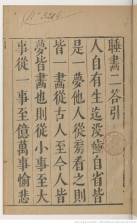 睡畫二答引
人自有生迄没齒自省皆
是夢他人從旁看之則
皆一畫從古人至今人皆
夢皆畫也則從小事至大
事從一事至億萬事愉悲